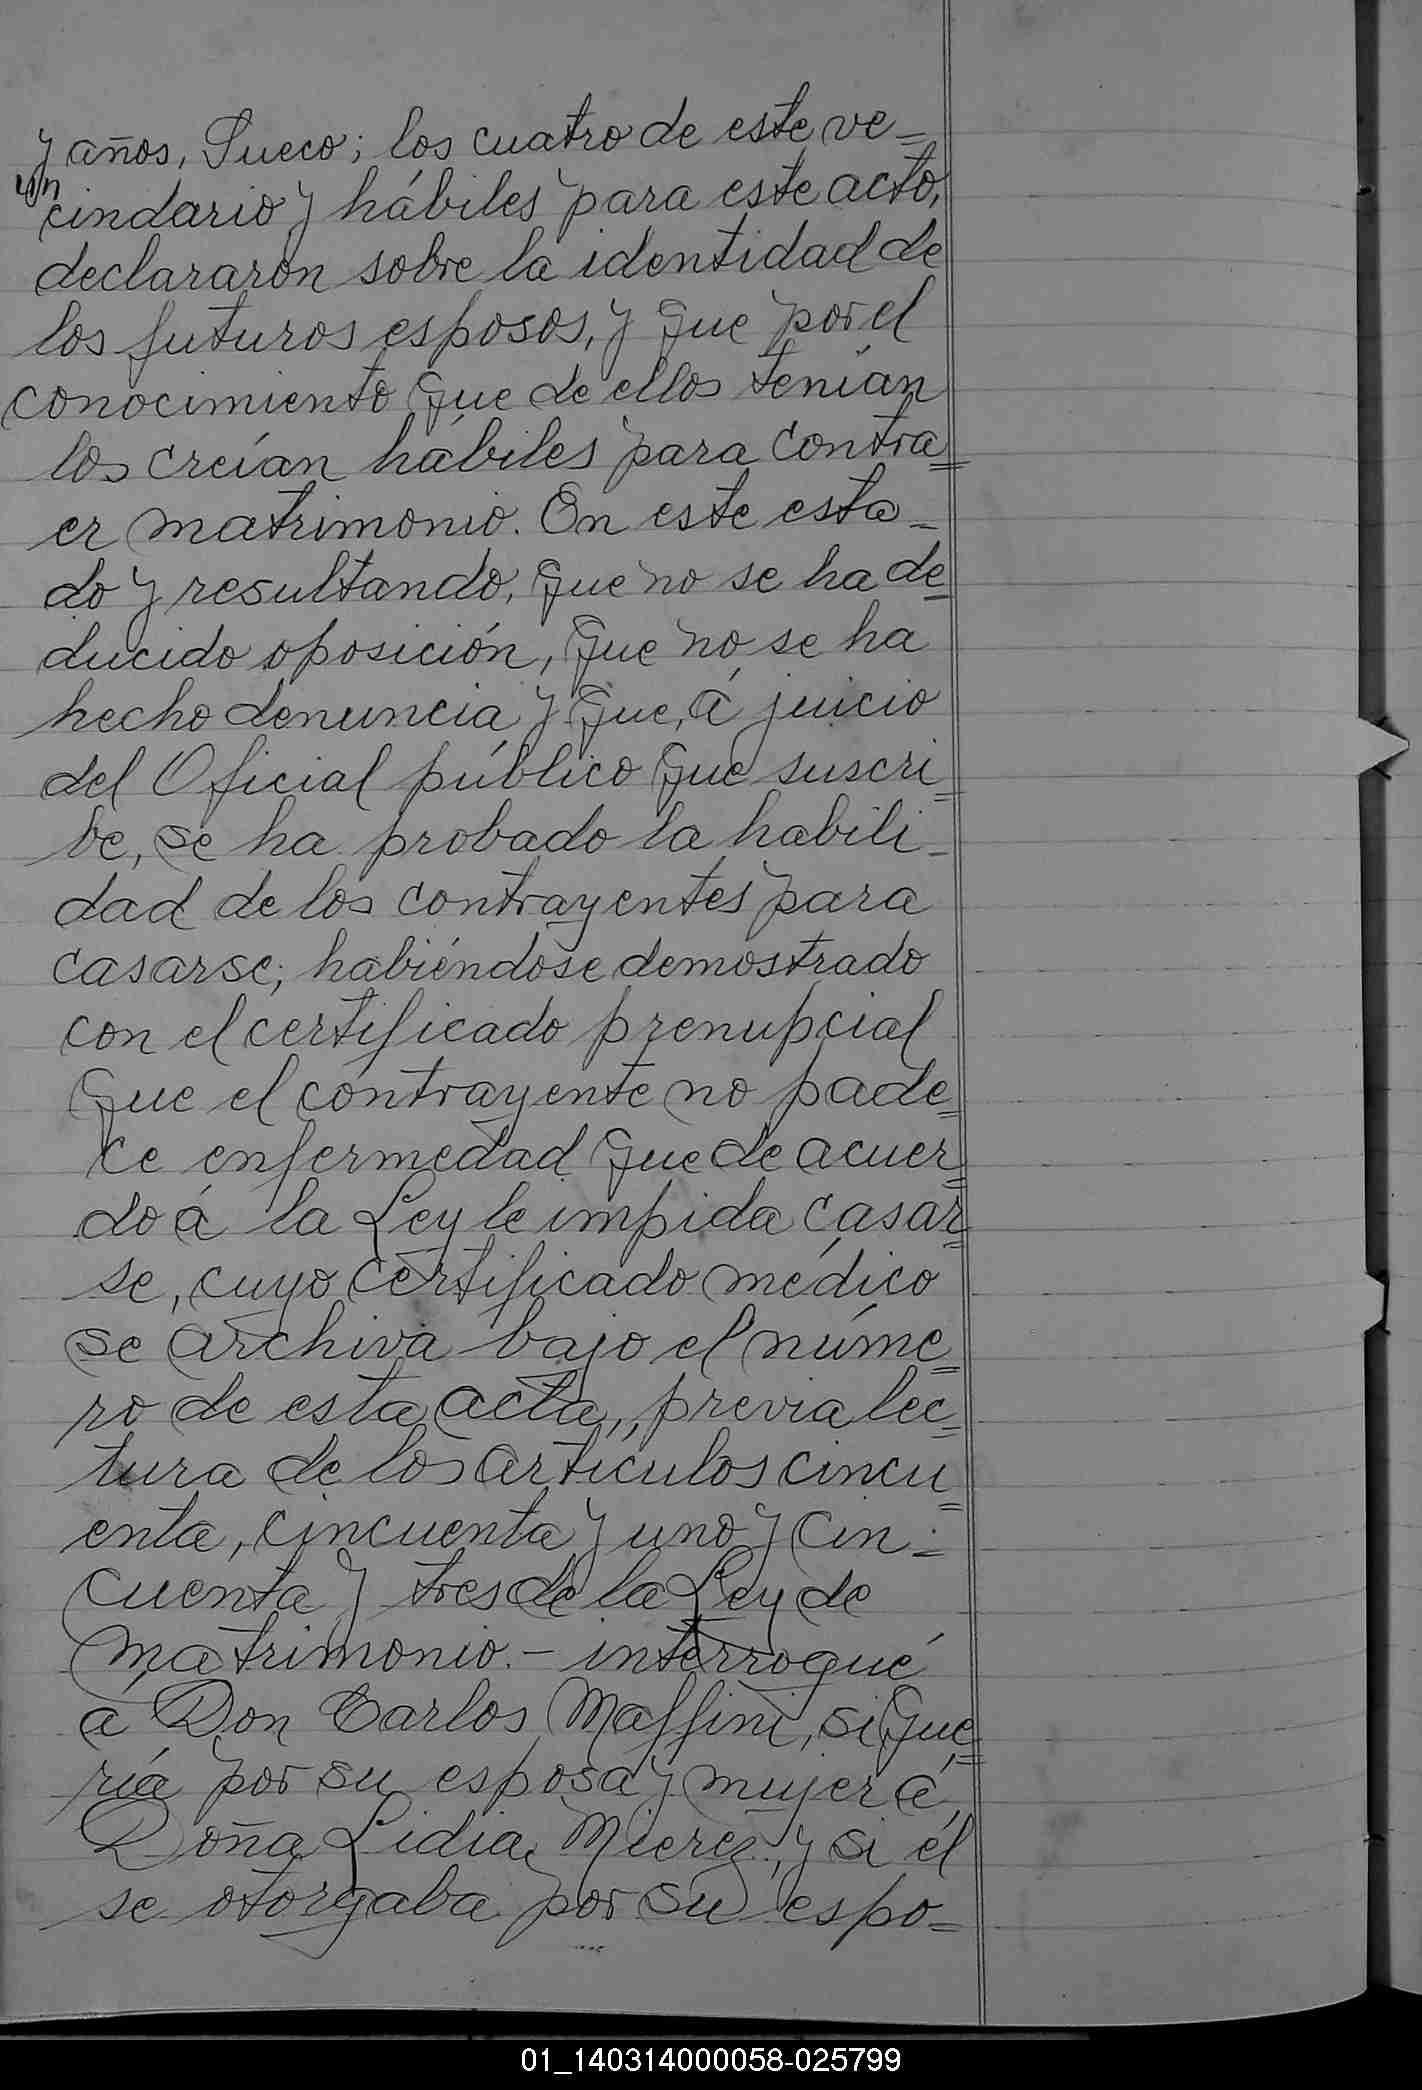 y un años, Sueco; los cuatro de este ve=
cindario y hábiles para este acto,
declararon sobre la identidad de
los futuros esposos, y que por el
conocimiento que de ellos tenían
los creían hábiles para contra=
er matrimonio. En este esta=
do y resultando, que no se ha de=
ducido oposición, que no se ha
hecho denuncia y que, á juicio
del Oficial público que suscri=
be, se ha probado la habili=
dad de los contrayentes para
casarse; habiéndose demostrado
con el certificado prenupcial
que el contrayente no pade=
ce enfermedad que de acuer=
do á la Ley le impida casar=
se, cuyo certificado médico
se archiva bajo el núme=
ro de esta acta,, previa lec=
tura de los artículos cincu=
enta, cincuenta y uno y cin=
cuenta y tres de la Ley de
Matrimonio.- interrogué
a Don Carlos Maffini, si que=
ría por su esposa y mujer á
Doña Lidia Mierez, y si él
se otorgaba por su espo=
01_140314000058-025799